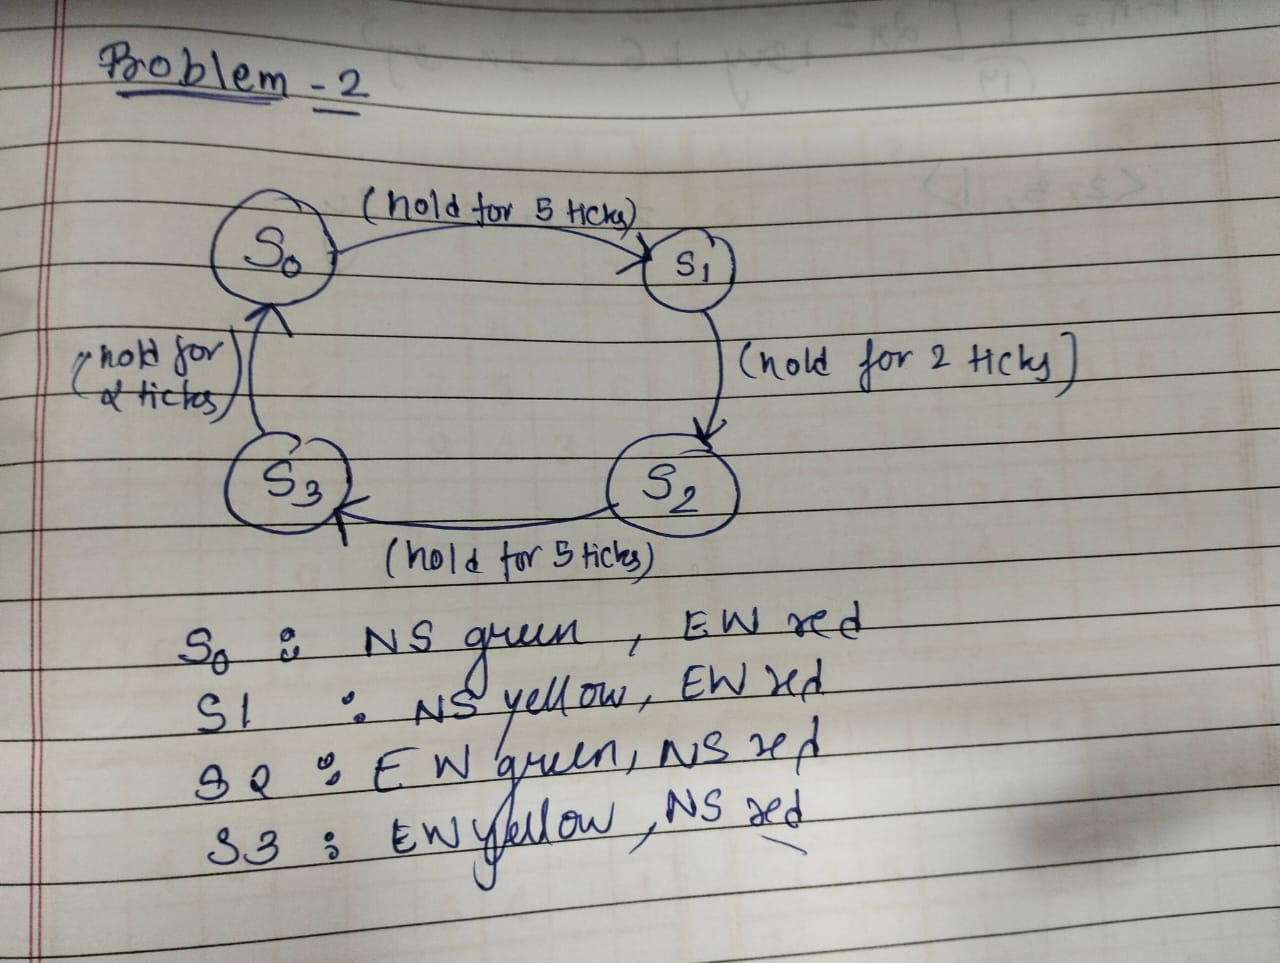 Problem - 2
(hold for 5 ticks)
S0
S1
(hold for
2 ticks)
(hold for 2 ticks)
S3
S2
(hold for 5 ticks)
S0 : NS green, EW red
S1 : NS yellow, EW red
S2 : EW green, NS red
S3 : EW yellow, NS red